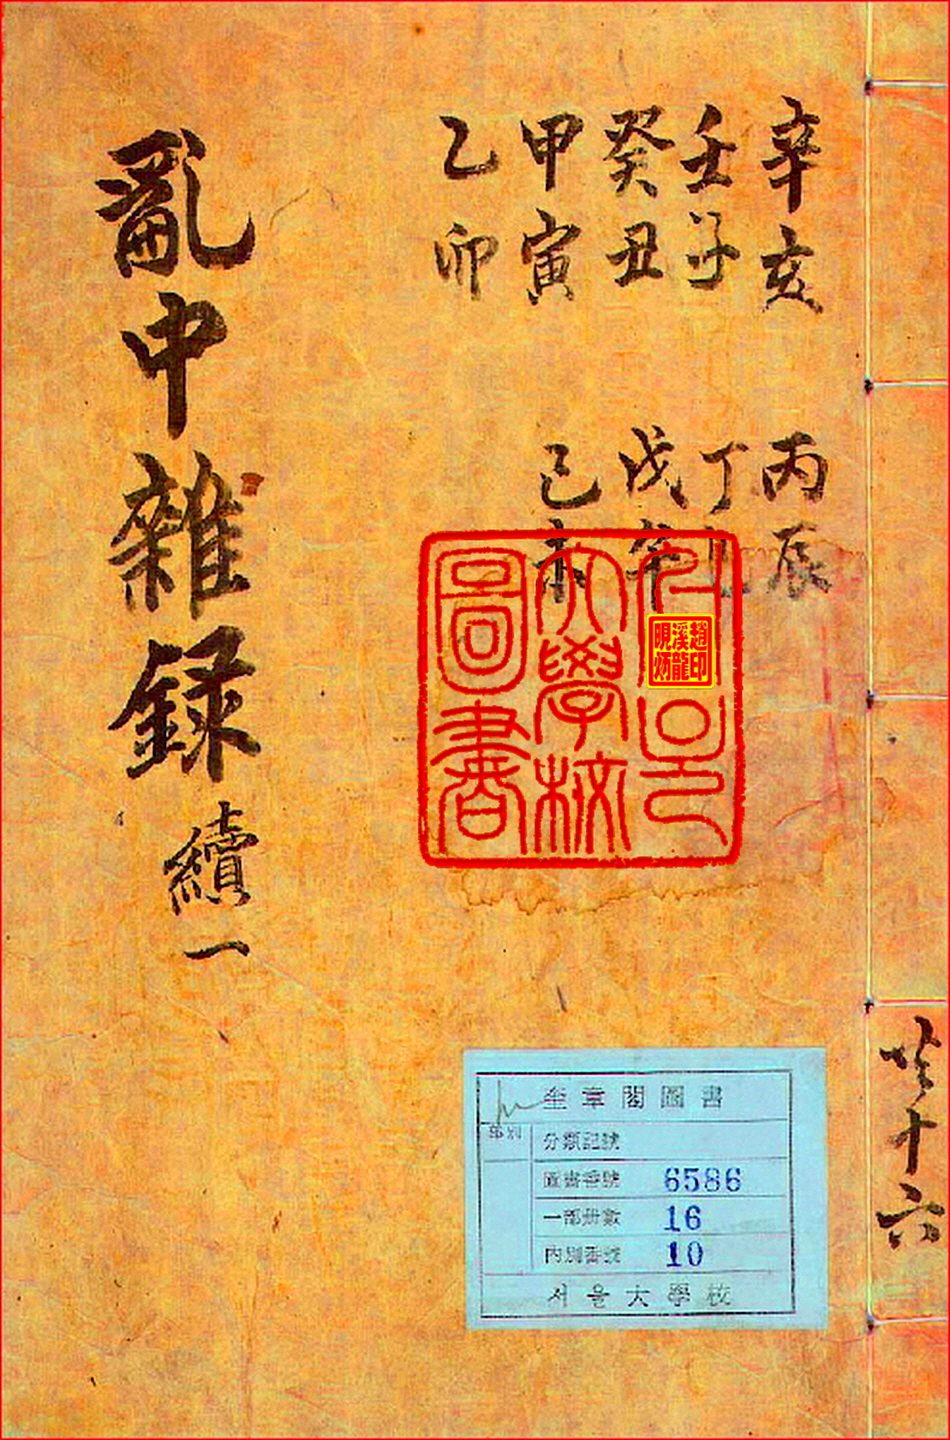 共十六
辛亥
壬子
癸丑
甲寅
乙卯
丙辰
丁巳
戊午
己未
亂中雜録 續一
서울
大學校
圖書
趙印
溪龍
奎章閣圖書
部別
分類記號
圖書番號 6586
一部册數 16
內別番號 10
서울大學校